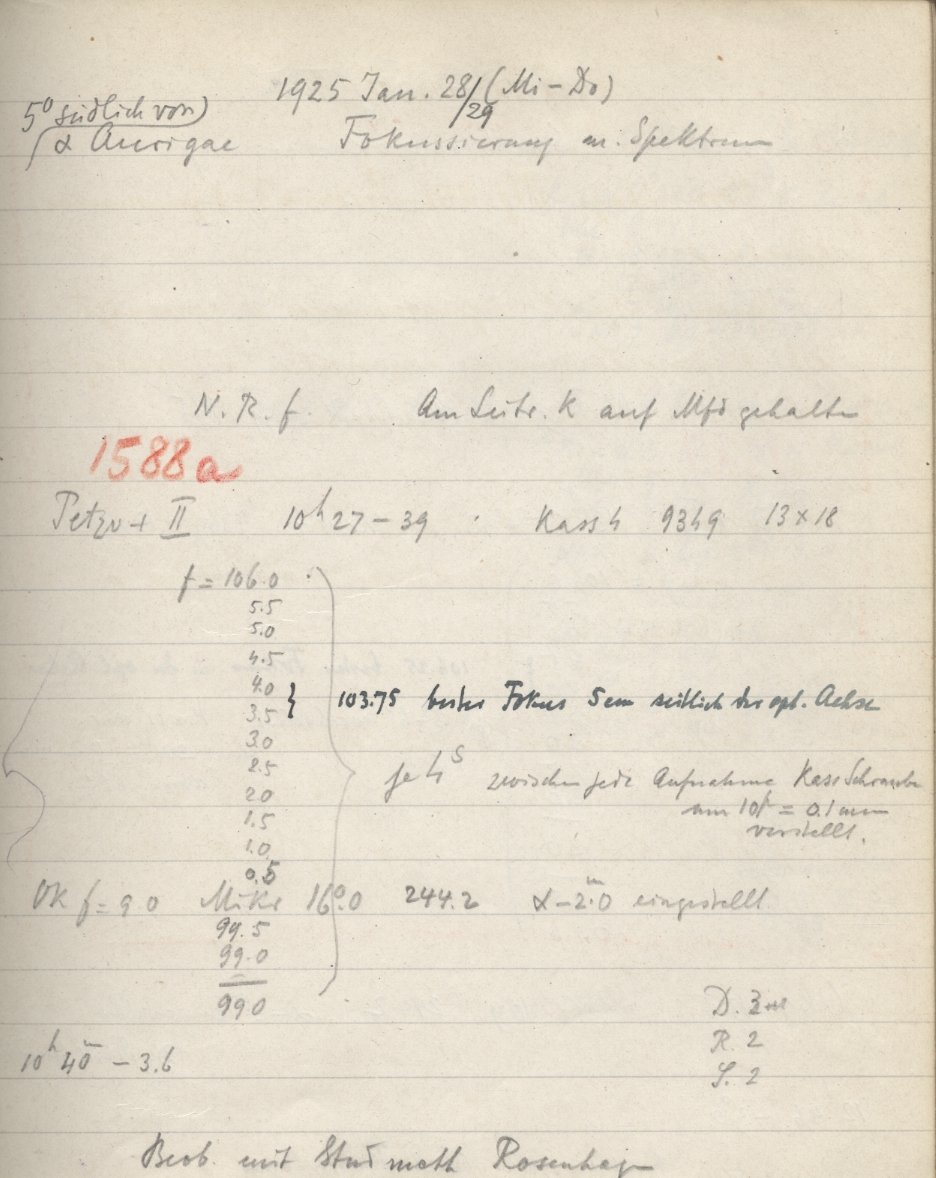 1925 Jan. 28/29 (Mi-Do)
5° südlich von
α Aurigae
Fokussierung m. Spektrum
N. R. f.
Am Leitr. K auf Mfd gehalten
1588a
Petzv + II 10h 27-39 Kass 4 9349 13×18
f = 106.0
5.5
5.0
4.5
4.0
3.5
103.75 bester Fokus 5 cm seitlich der opt. Achse
3.0
2.5
je 4s zwischen jede Aufnahme Kass Schraube
2.0
um 10t = 0.1 mm
1.5
verstellt.
1.0
0.5
OK f = 90 Mikr 16°.0 244.2 α-2m.0 eingestellt
99.5
99.0
990
D. 3
R. 2
10h 40m - 3.6
S. 2
Beob. mit Stud math Rosenhagen